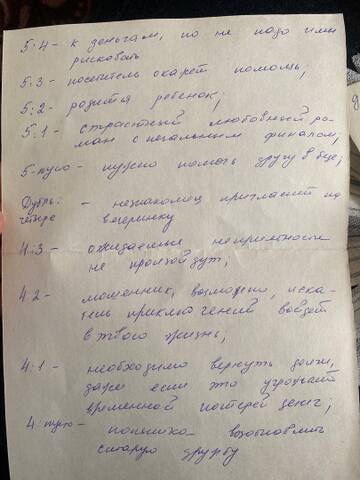 5:4 - к деньгам, но не надо ими
рисковать
5:3 - посетитель окажет помощь;
5:2 - родится ребенок;
5:1 - страстный любовный ро-
ман с печальным финалом;
5-пусто - нужно помочь другу в беде;
Дубль: - незнакомец пригласит на
четыре вечеринку
4:3 - ожидаемые неприятности
не произойдут;
4:2 - мошенник, возможно, иска-
тель приключений войдет
в твою жизнь;
4:1 - необходимо вернуть долги,
даже если это угрожает
временной потерей денег;
4:пусто - попытка возобновить
старую дружбу